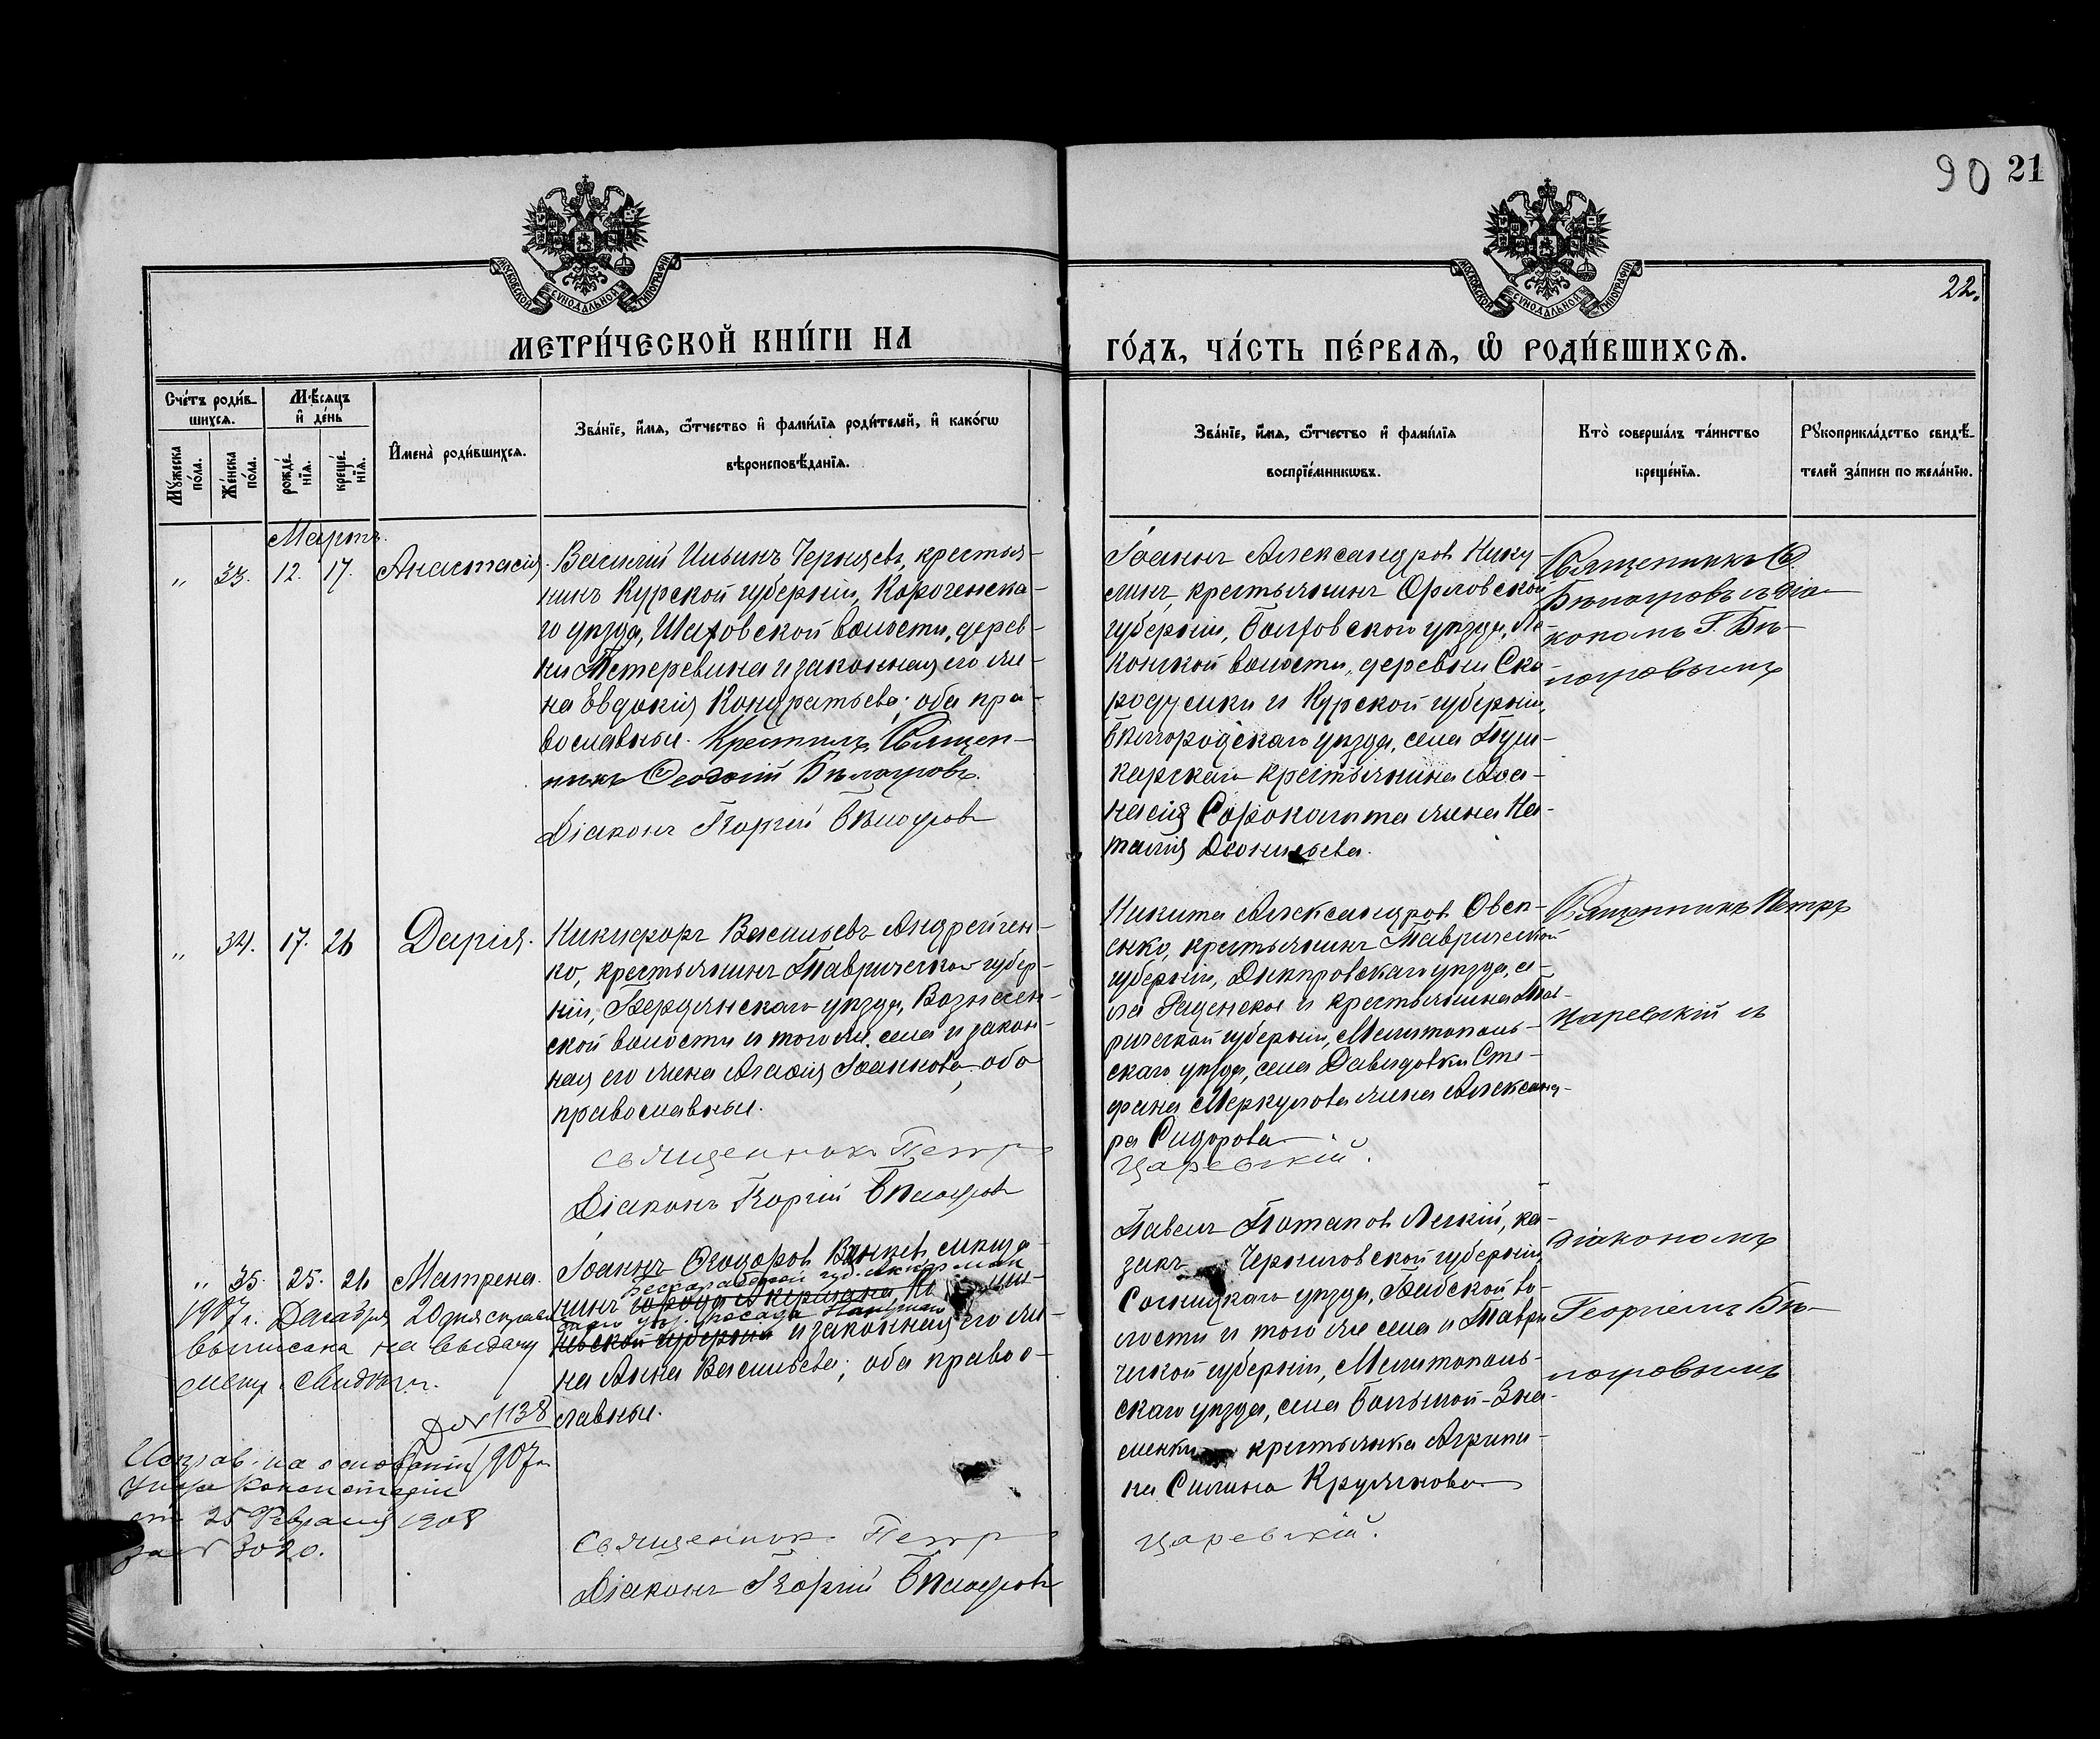 90 21
22.
МОСКОВСКОЙ СУНОДАЛЬНОЙ ТИПОГРАФІИ
МОСКОВСКОЙ СУНОДАЛЬНОЙ ТИПОГРАФІИ
МЕТРИ́ЧЕСКОЙ КНИ́ГИ НА
ГО́ДЪ, ЧА́СТЬ ПЕ́РВАѦ, Ѽ РОДИ́ВШИХСѦ.
Сче́тъ роди́в-
шихсѧ.
Мѣ́сѧцъ
и҆ де́нь
Мꙋ́жеска по́ла.
Же́нска по́ла.
рожде́-
нїѧ.
креще́-
нїѧ.
И҆мена̀ роди́вшихсѧ.
Зва́нїе, и҆́мѧ, ѻ҆́тчество и҆ фами́лїѧ роди́телей, и҆ како́гѡ
вѣроисповѣ́данїѧ.
Зва́нїе, и҆́мѧ, ѻ҆́тчество и҆ фами́лїѧ
воспрїе́мникѡвъ.
Кто̀ соверша́лъ та́инство
креще́нїѧ.
Рꙋкоприкла́дство свидѣ́-
телей за́писи по жела́нїю.
Мартъ.
" 33. 12. 17. Анастасія.
Василій Ильинъ Чернцевъ, крестья-
нинъ Курской губерніи, Короченска-
го уѣзда, Шаховской волости, дерев-
ни Тетеревина и законная его же-
на Евдокія Кондратьева; оба пра-
вославные. Крестилъ Священ-
никъ Ѳеодосій Бѣлогровъ.
Діаконъ Георгій Бѣлогровъ
Іоаннъ Александровъ Нику-
линъ, крестьянинъ Орловской
губерніи, Болховского уѣзда,
волости, деревни Ско-
родумки и Курской губерніи,
Бѣлгородскаго уѣзда, села Пуш-
карскаго крестьянина Аѳа-
насія Сорокалѣта жена На-
талія
Священникъ Ѳ.
Бѣлогровъ съ діа-
кономъ Г. Бѣ-
логровымъ
" 34. 17. 26 Дарія.
Никифоръ Васильевъ Андрейчен-
ко, крестьянинъ Таврической губер-
ніи, Бердянскаго уѣзда, Вознесен-
ской волости и того же села и закон-
ная его жена Агафія Іоаннова, оба
православные.
Священник Петр
Діаконъ Георгій Бѣлогровъ
Никита Александровъ Овсі-
енко, крестьянинъ Таврической
губерніи, Днѣпровскаго уѣзда, се-
ла Раденское и крестьянина Тав-
рической губерніи, Мелитополь-
скаго уѣзда, села Давыдовки Сте-
фана Меркулова жена Александ-
ра Сидорова
Царевскій.
Священникъ Петръ
Царевскій съ
діакономъ
Георгіемъ Бѣ-
логровымъ
" 35. 25. 26 Матрена.
Іоаннъ Ѳеодоровъ Ванжевъ, мѣща-
Бессарабской губ. Аккерман
нинъ города Акермана,
скаго уѣз. посада
губерніи и законная его же-
на Анна Васильева; оба правос-
лавные.
Священник Петр
Діаконъ Георгій Бѣлогровъ
Павелъ Потаповъ Легкій, ка-
закъ Черниговской губерніи,
Сосницкаго уѣзда, Бабской во-
лости и того же села и Таври-
ческой губерніи, Мелитополь-
скаго уѣзда, села Большой-Зна-
менки крестьянка Агрипи-
на Силина Кружнова
Царевскій.
1907 г. Декабря 20 дня справка
выписана на выдачу
метр. свидѣт.
№ 1138
1907 г.
Исправ. на основаніи
указа Консисторіи
отъ 25 Февраля 1908
за № 3020.